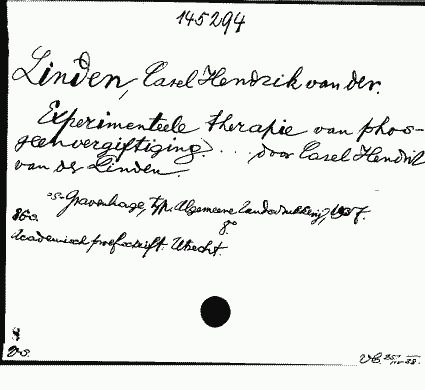 145294
Linden, Carel Hendrik van der.
Experimenteele therapie van phos-
geenvergiftiging. ... door Carel Hendrik
van der Linden
's-Gravenhage, typ. Algemeene Landsdrukkerij, 1937.
86 o. 8°
Academisch proefschrift. Utrecht.